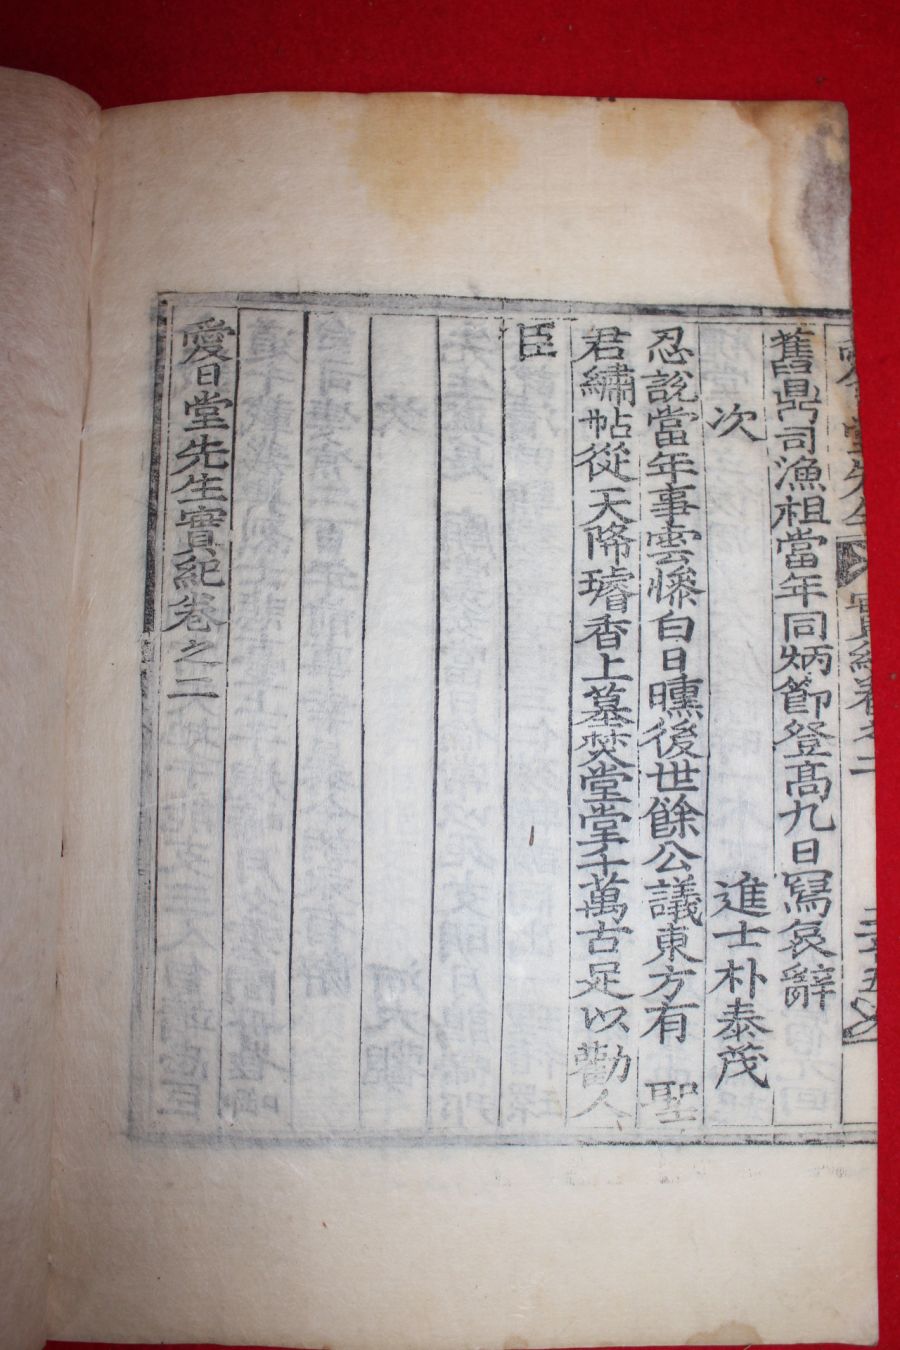 愛日堂先生實紀卷之二
舊鼎司漁祖當年同炳節登高九日寫哀辭
次 進士朴泰茂
忍說當年事雲慘白日曛後世餘公議東方有 聖
君繡帖從天降璿香上墓焚堂堂千萬古足以勸人
臣
愛日堂先生實紀卷之二